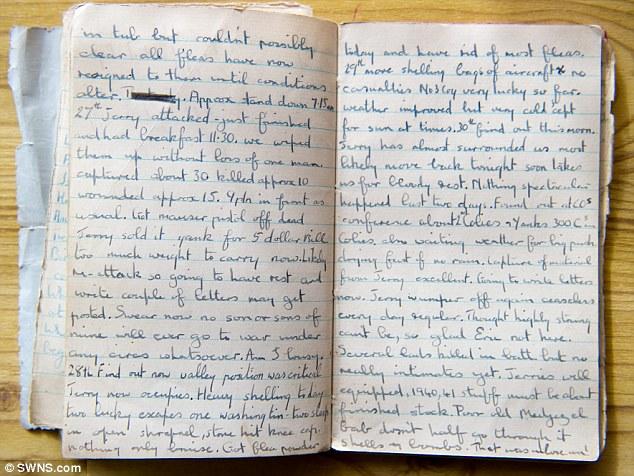 in tub but couldn't possibly
clear all fleas have now
resigned to them until conditions
alter. Approx stand down 7.15am
27th Jerry attacked - just finished
and had breakfast 11.30. we wiped
them up without loss of one man.
captured about 30 killed approx 10
wounded approx 15. 9 pln in front as
usual. Got mauser pistol off dead
Jerry sold it yank for 5 dollar bill
too much weight to carry now. Likely
re-attack so going to have rest and
write couple of letters may get
posted. Swear now no son or sons of
mine will ever go to war under
any circs whatsoever. Am I lousy.
28th Find out now valley position was critical
Jerry now occupies. Heavy shelling today
two lucky escapes one washing tin - two sleep
in open, shrapnel, stone hit knee cap.
nothing only bruise. Got flea powder
today and have rid of most fleas.
29th more shelling bags of aircraft & no
casualties No 3 Coy very lucky so far.
weather improved but very cold 'cept
for sun at times. 30th find out this morn.
Jerry has almost surrounded us most
likely move back tonight soon takes
us for bloody rest. Nothing spectacular
happened last two days. Found out at COs
conference about Cdies & Yanks 300
Cdies, also waiting weather for big push
drying fast if no rain. Capture of material
from Jerry excellent. Going to write letters
now. Jerry wumper off again ceaseless
every day regular. Thought highly strung
can't be, so glad Eric not here.
Several lads killed in batt but no
really intimates yet. Jerries well
equipped, 1940, 41 stuff must be about
finished stock. Poor old Medjez el
Bab doesn't half go through it
shells & bombs. That was
© SWNS.com